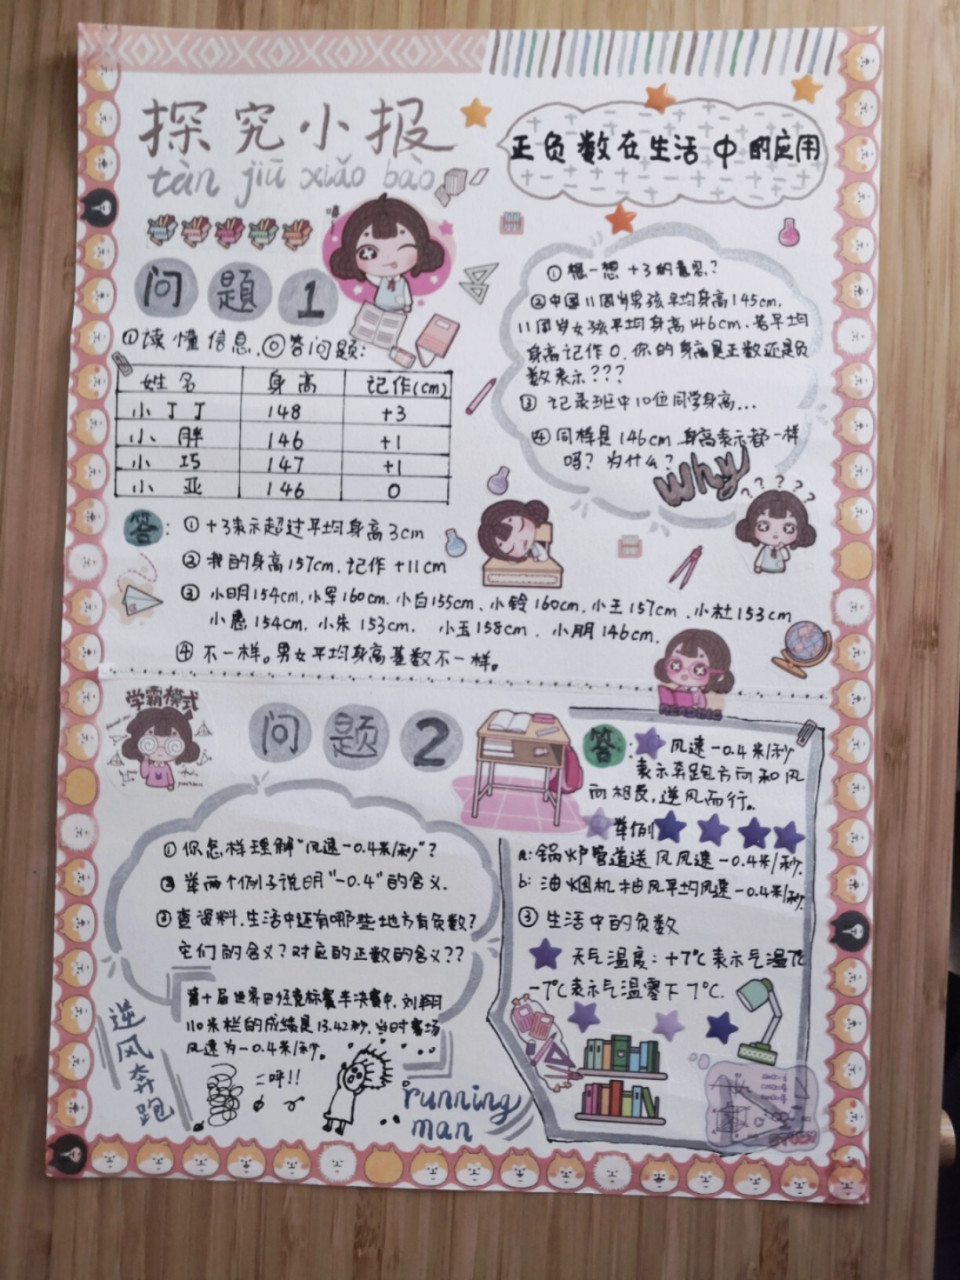 探究小报
tàn jiū xiǎo bào
正负数在生活中的应用
问题1
①读懂信息,◎答问题:
姓名 身高 记作(cm)
小丁丁 148 +3
小胖 146 +1
小巧 147 +1
小亚 146 0
①想一想+3的意思?
②中国11周岁男孩平均身高145cm,
11周岁女孩平均身高146cm.若平均
身高记作0,你的身高是正数还是负
数表示???
③记录班中10位同学身高...
④同样是146cm身高表示都一样
吗?为什么?
Why
? ? ? ? ?
答:①+3表示超过平均身高3cm
②我的身高157cm.记作+11cm
③小明154cm,小军160cm.小白155cm、小铃160cm,小王157cm,小杜153cm
小惠154cm,小朱153cm. 小玉158cm.小朋146cm.
④不一样。男女平均身高基数不一样。
学霸模式
问题2
①你怎样理解“风速-0.4米/秒”?
②举两个例子说明“-0.4”的含义.
③查资料,生活中还有哪些地方有负数?
它们的含义?对应的正数的含义??
第十届世界田径竞标赛半决赛中,刘翔
110米栏的成绩是13.42秒,当时赛场
风速为-0.4米/秒。
逆风奔跑
二呼!!
running
man
READING
答:风速-0.4米/秒
表示奔跑方向和风
向相反,逆风而行。
举例
a:锅炉管道送风风速-0.4米/秒.
b:油烟机抽风平均风速-0.4米/秒.
③生活中的负数
天气温度:+7℃表示气温7℃
-7℃表示气温零下7℃.
STUDY